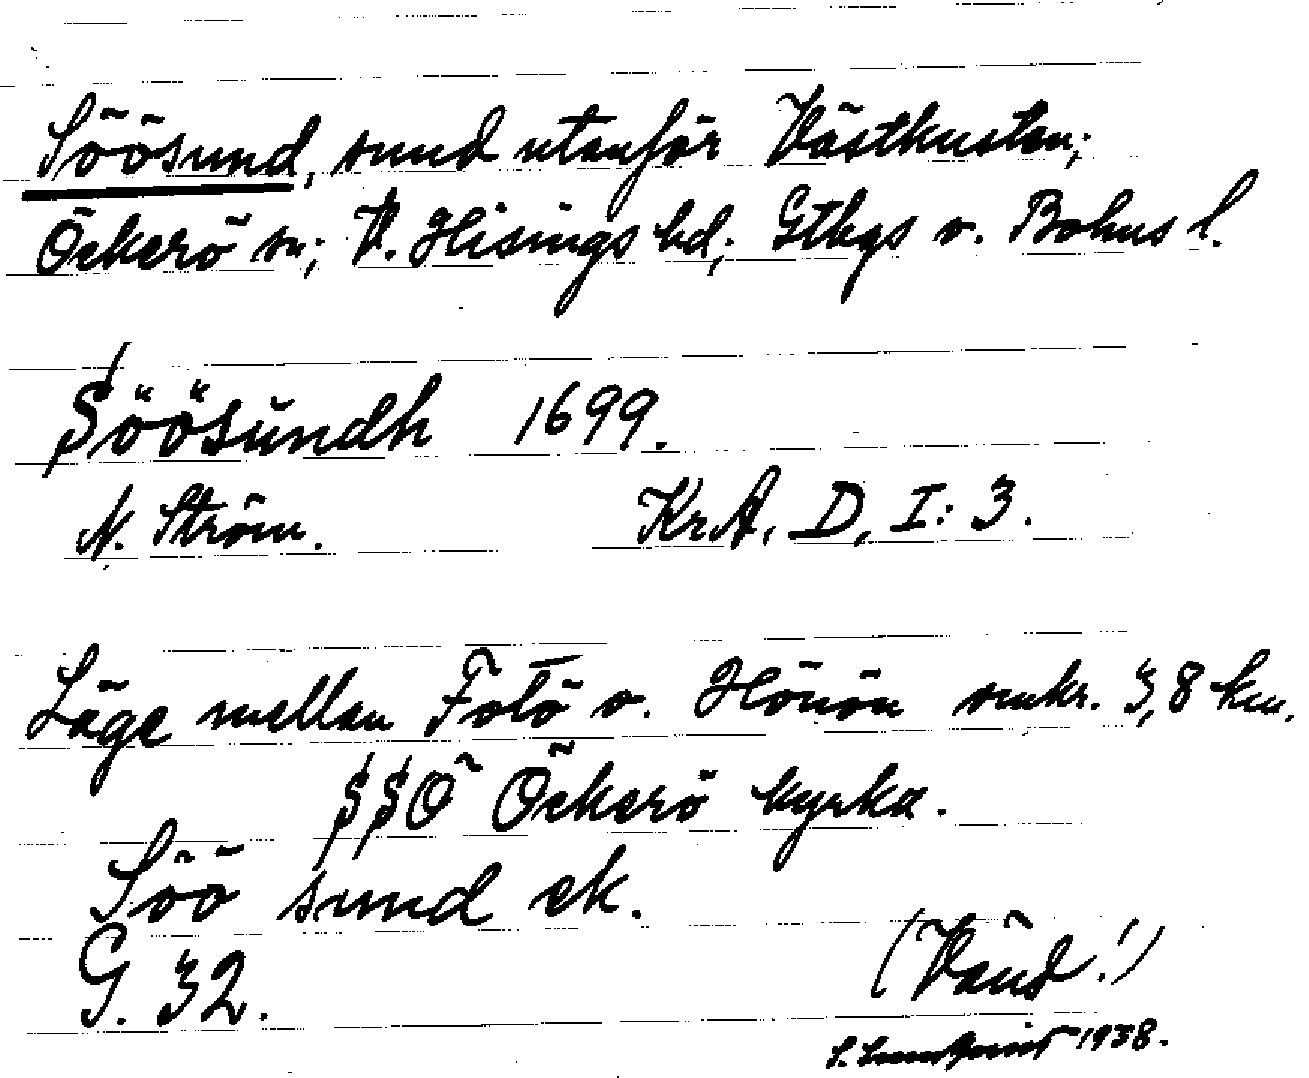 Söösund, sund utanför Västkusten;
Öckerö sn; V. Hisings hd; Gtbgs o. Bohus l.
Söösŭndh 1699.
N. Ström. KrA, D, I: 3.
Läge mellan Fotö o. Hönön omkr. 3,8 km.
SSO Öckerö kyrka.
Söö sund ek.
G. 32.
(Vänd!)
S. Lundquist 1938.